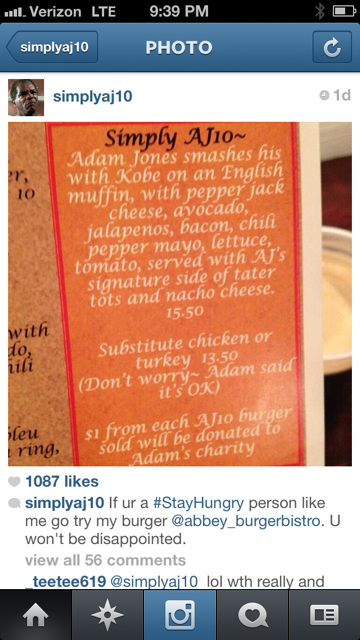 Verizon LTE 9:39 PM
simplyaj10 PHOTO
simplyaj10 1d
Simply AJ10~
Adam Jones smashes his
with Kobe on an English
muffin, with pepper jack
cheese, avocado,
jalapenos, bacon, chili
pepper mayo, lettuce,
tomato, served with AJ's
signature side of tater
tots and nacho cheese.
15.50
Substitute chicken or
turkey 13.50
(Don't worry~ Adam said
it's OK)
$1 from each AJ10 burger
sold will be donated to
Adam's charity
10
with
ring,
1087 likes
simplyaj10 If ur a #StayHungry person like
me go try my burger @abbey_burgerbistro. U
won't be disappointed.
view all 56 comments
_teetee619 @simplyaj10 lol wth really and